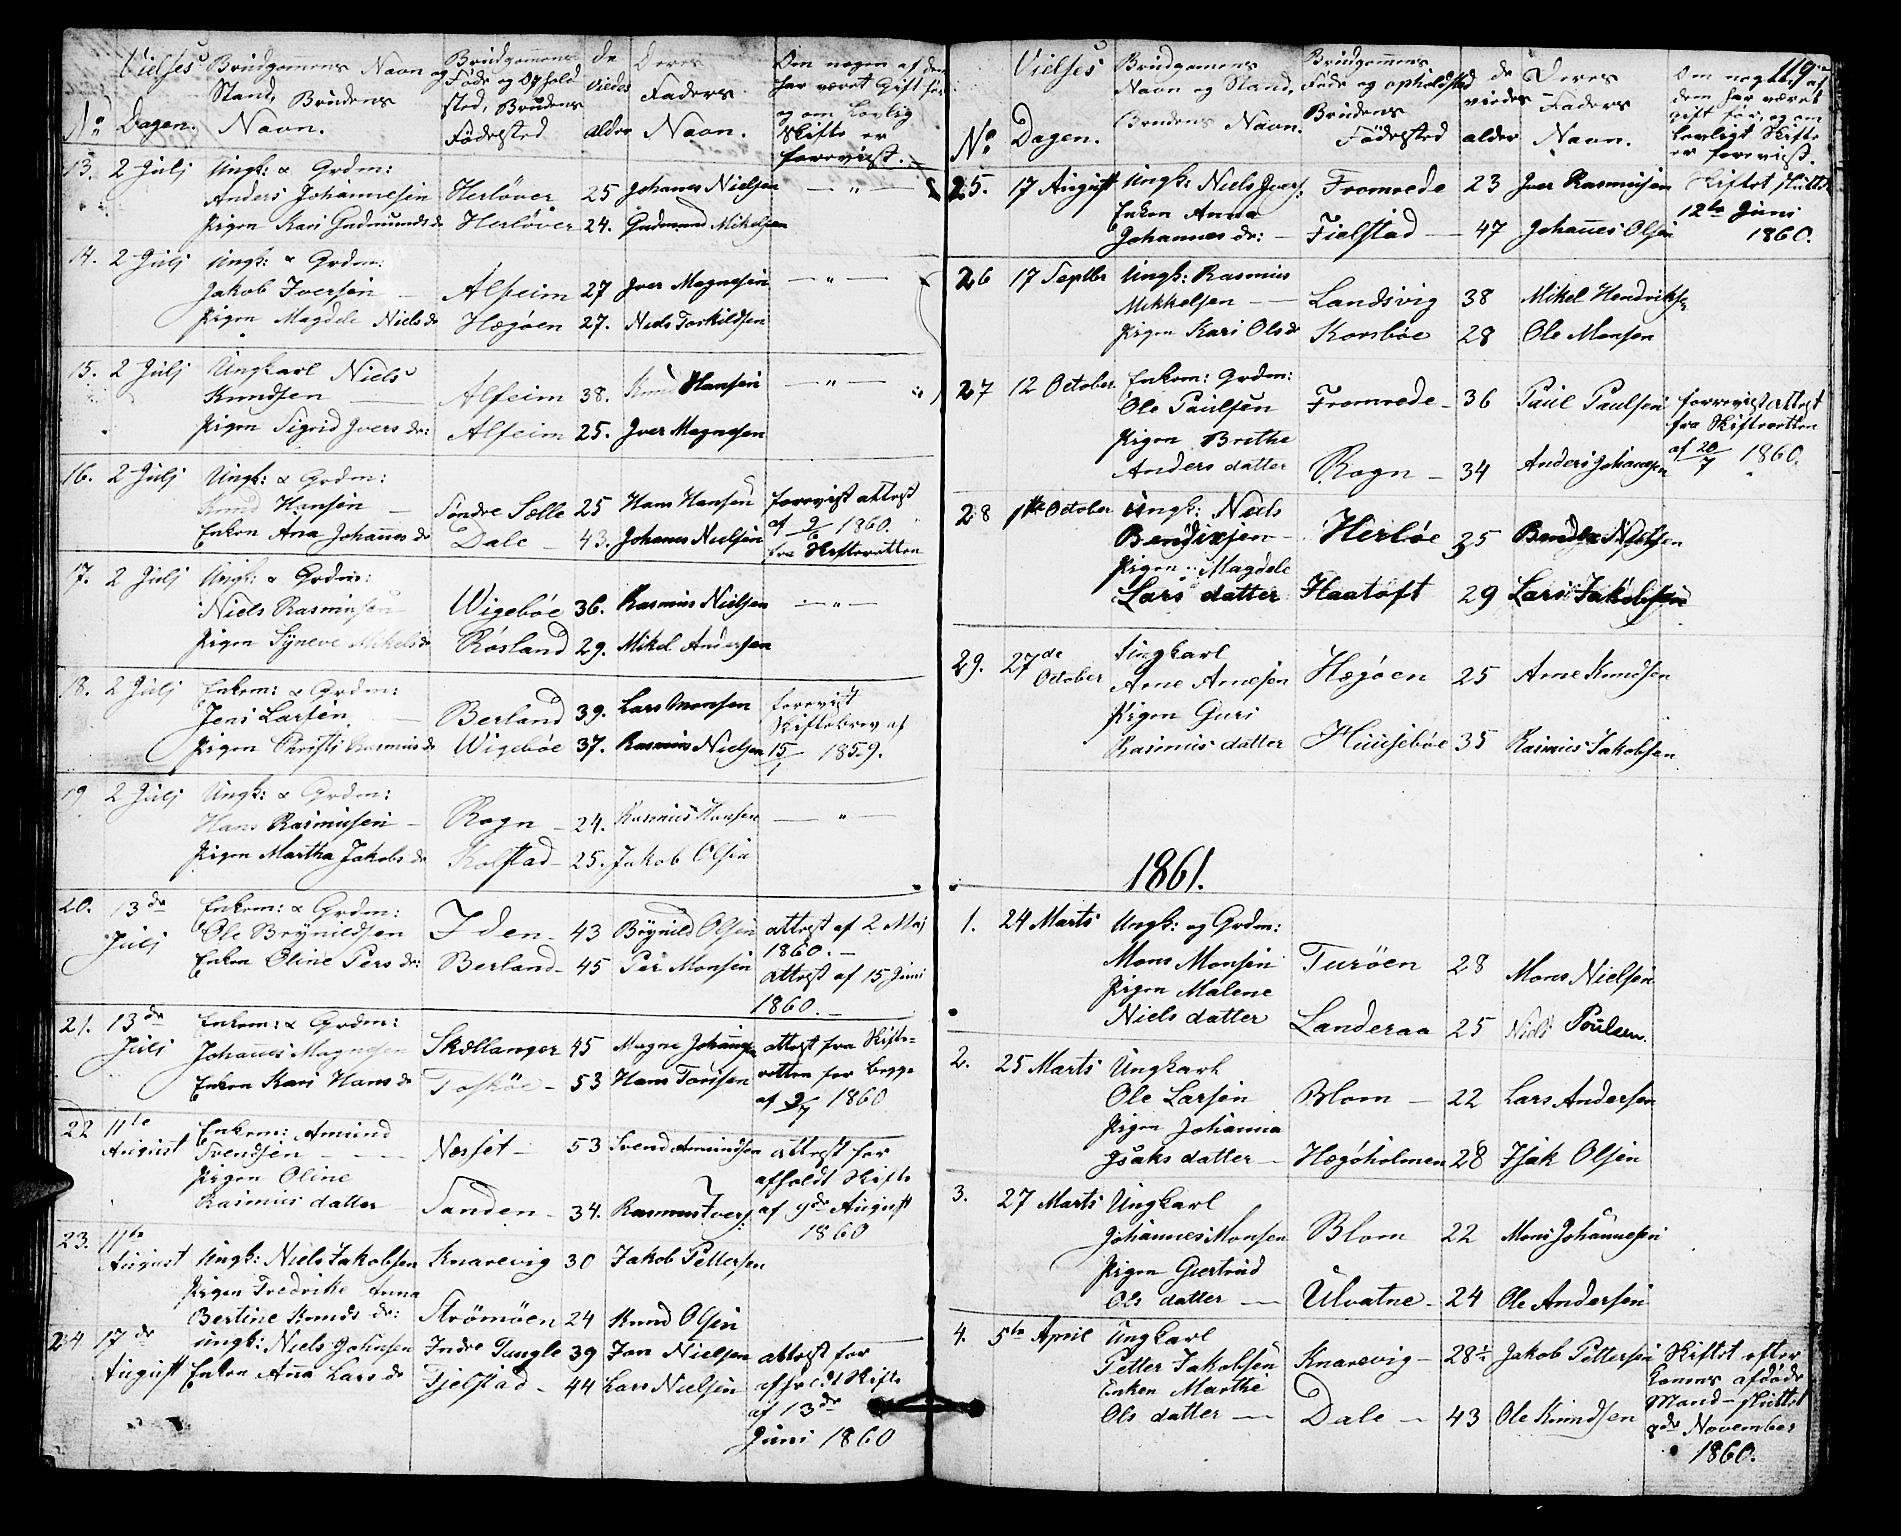 Vielses Brudgommens Navn og Brudgommens de Deres Om nogen af dem
Stand, Brudens Føde og Ophold viedes Faders har været Gift før
No Dagen. Navn. sted, Brudens alder Navn. og om Lovlig
Fødested Skifte er
forevist.
13. 2 Julj Ungk: & Grdm:
Anders Johannesen Herløver 25 Johanes Nielsen — " —
Pigen Kari Gudmunds dr Herløver 24. Gudmund Mikelsen
14. 2 Julj Ungk: & Grdm:
Jakob Iversen — Alfeim 27 Iver Magnesen — " —
Pigen Magdele Niels dr Hægøen 27. Niels Torkildsen
15. 2 Julj Ungkarl Niels
Knudsen — Alfeim 38. Knud Hansen — " —
Pigen Sigrid Ivers dr: Alfeim 25. Iver Magnesen
16. 2 Julj Ungk: & Grdm:
Knud Hansen — Søndre Sælle 25 Hans Hansen forevist attest
Enken Ana Johanes dr Dale — 43. Johanes Nielsen af 9/6 1860.
fra Skifteretten
17. 2 Julj Ungk: & Grdm:
Niels Rasmusen Wigebøe 36. Rasmus Nielsen — " —
Pigen Syneve Mikels dr Røsland 29. Mikel Andersen
18. 2 Julj Enkem: & Grdm:
Jens Larsen — Berland 39. Lars Monsen forevist
Skiftebrev af
Pigen Christi Rasmus dr Wigebøe 37. Rasmus Nielsen 15/1 1859.
19 2 Julj Ungk: & Grdm:
Hans Rasmusen — Rogn — 24. Rasmus Hansen — " —
Pigen Martha Jakobs dr Kolstad — 25. Jakob Olsen
20. 13de Enkem: & Grdm:
Julj Ole Brynildsen Iden — 43 Brynild Olsen attest af 2 Maj
1860. —
Enken Oline Pers dr: Berland — 45 Per Monsen attest af 15 Juni
1860. —
21. 13de Enkem: & Grdm:
Julj Johanes Magnesen Skællanger 45 Magne Johansen attest fra Skifte-
Enken Kari Hans dr Toskøe — 53 Hans Tomsen retten for begge
af 9/7 1860
22 11te Enkem: Amund
August Svendsen — — Nesset — 53 Svend Amundsen attest for
Pigen Oline afholdt Skifte
Rasmus datter Sanden — 34. Rasmus Ivers: af 9de August
1860
23. 11te
August Ungk: Niels Jakobsen Knarevig 30 Jakob Pettersen
Pigen Fredrike Anna
Bertine Knuds dr: Strømøen 24 Knud Olsen
24 17de Ungk: Niels Johnsen Indre Tungle 39 Jon Nielsen attest for
August Enken Ana Lars dr Fjelstad — 44 Lars Nielsen afholdt Skifte
af 13de
Juni 1860
119
Vielses Brudgommens Brudgommens de Deres Om nogen af
Navn og Stand, Føde og opholdsted viedes Faders dem har været
Brudens Gift før, og om
No Dagen. Brudens Navn. Fødested alder Navn. lovligt Skifte
er forevist.
25. 17 August Ungk: Niels Ivers: Fromrede 23 Iver Rasmusen Skiftet sluttet
Enken Anna 12te Juni
Johannes dr: — Fielstad — 47 Johanes Olsen 1860.
26 17 Septbr Ungk: Rasmus
Mikkelsen — Landsvig 38 Mikel Hendriksen
Pigen Kari Ols dr Korsbøe 28 Ole Monsen
27 12 October Enkem: Grdm:
Ole Paulsen Fromrede — 36 Paul Paulsen forevist attest
Pigen Brithe fra Skifteretten
Anders datter Rogn — 34 Anders Johansen af 20/7 1860.
28 1ste October Ungk: Niels
Bendixen — Herløe 25 Bendix Nielsen
Pigen Magdele
Lars datter Haatoft 29 Lars Jakobsen
29. 27de Ungkarl
October Arne Arnesen Hægøen 25 Arne Knudsen
Pigen Guri
Rasmus datter Huusebøe 35 Rasmus Jakobsen
1861.
1. 24 Marts Ungk: og Grdm:
Mons Monsen Turøen 28 Mons Nielsen
Pigen Malene
Niels datter Landeraa 25 Niels Poulsen.
2. 25 Marts Ungkarl
Ole Larsen Blom — 22 Lars Andersen
Pigen Johanna
Isaks datter — Hægøholmen 28 Isak Olsen
3. 27 Marts Ungkarl
Johannes Monsen Blom 22 Mons Johannesen
Pigen Giertrud
Ols datter — Ulvatne — 24 Ole Andersen
4. 5te April Ungkarl
Petter Jakobsen Knarevig — 28½ Jakob Pettersen Skiftet efter
Enken Marthe Konens afdøde
Ols datter — Dale — 43 Ole Knudsen Mand — sluttet
8de November
1860.